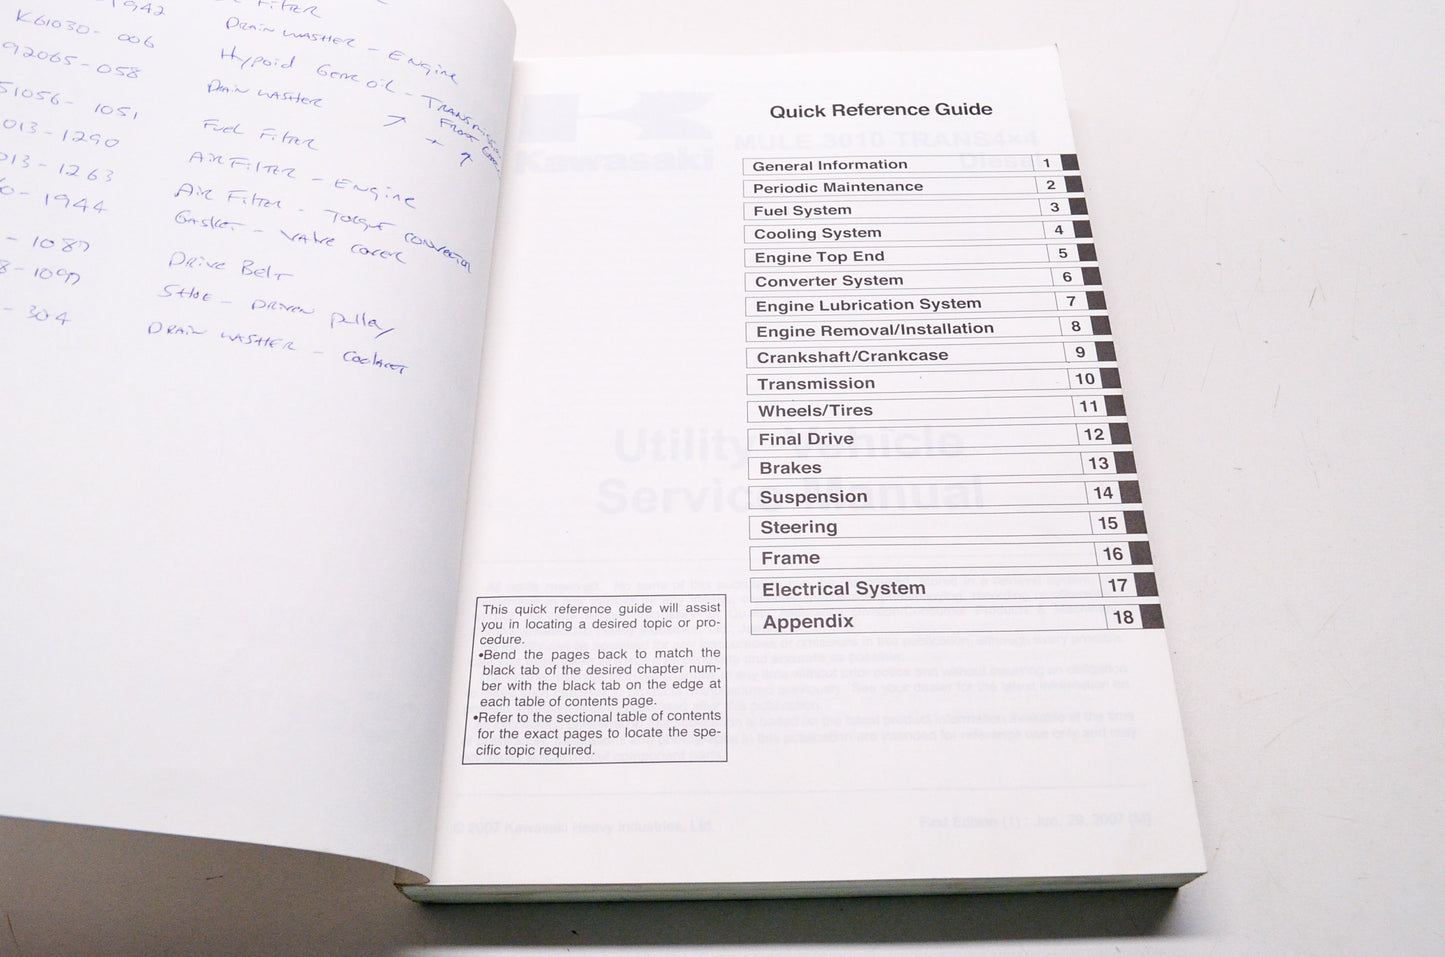 1942
Filter
K61030-006
Drain washer - Engine
92065-058
Hypoid Gear oil - Transmission
Front
1051
Drain washer
013-1290
Fuel Filter
013-1263
Air Filter - Engine
0-1944
Air Filter - Torque convertor
Gasket - valve cover
-1087
Drive Belt
8-1097
Shoe - Driven pulley
-304
Drain washer - Coolant
Kawasaki
MULE 3010 TRANS4×4
Diesel
Quick Reference Guide
General Information 1
Periodic Maintenance 2
Fuel System 3
Cooling System 4
Engine Top End 5
Converter System 6
Engine Lubrication System 7
Engine Removal/Installation 8
Crankshaft/Crankcase 9
Transmission 10
Wheels/Tires 11
Final Drive 12
Brakes 13
Suspension 14
Steering 15
Frame 16
Electrical System 17
Appendix 18
Utility Vehicle
Service Manual
This quick reference guide will assist
you in locating a desired topic or pro-
cedure.
•Bend the pages back to match the
black tab of the desired chapter num-
ber with the black tab on the edge at
each table of contents page.
•Refer to the sectional table of contents
for the exact pages to locate the spe-
cific topic required.
© 2007 Kawasaki Heavy Industries, Ltd.
First Edition (1) : Jun. 29, 2007 (M)